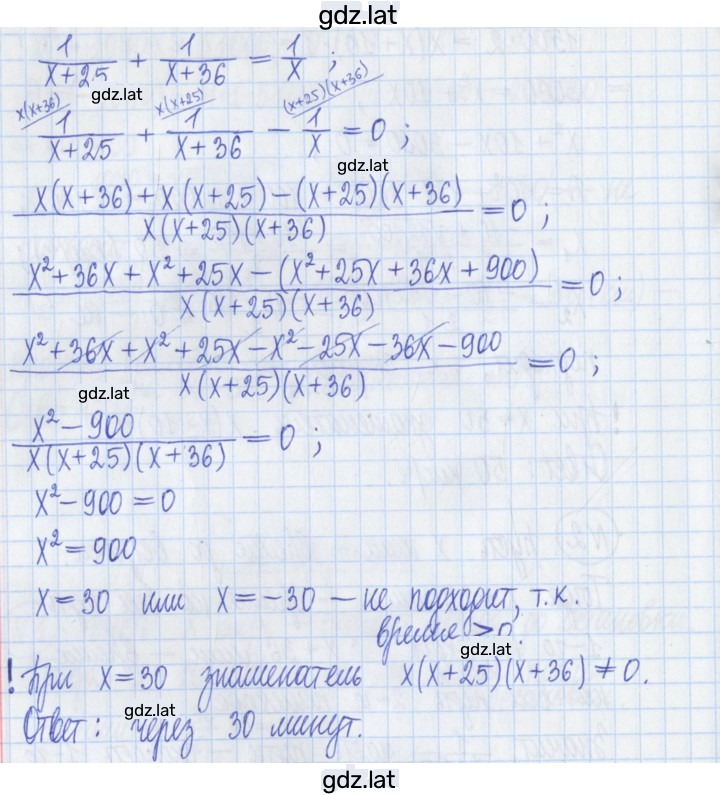 gdz.lat
1/(x+25) + 1/(x+36) = 1/x ;
gdz.lat
x(x+36) x(x+25) (x+25)(x+36)
1/(x+25) + 1/(x+36) − 1/x = 0 ;
gdz.lat
(x(x+36)+x(x+25)−(x+25)(x+36))/(x(x+25)(x+36)) = 0 ;
(x²+36x+x²+25x−(x²+25x+36x+900))/(x(x+25)(x+36)) = 0 ;
(x²+36x+x²+25x−x²−25x−36x−900)/(x(x+25)(x+36)) = 0 ;
gdz.lat
(x²−900)/(x(x+25)(x+36)) = 0 ;
x²−900=0
x²=900
x=30 или x=−30 – не подходит, т.к.
время >0.
gdz.lat
! При x=30 знаменатель x(x+25)(x+36)≠0.
gdz.lat
Ответ: через 30 минут.
gdz.lat